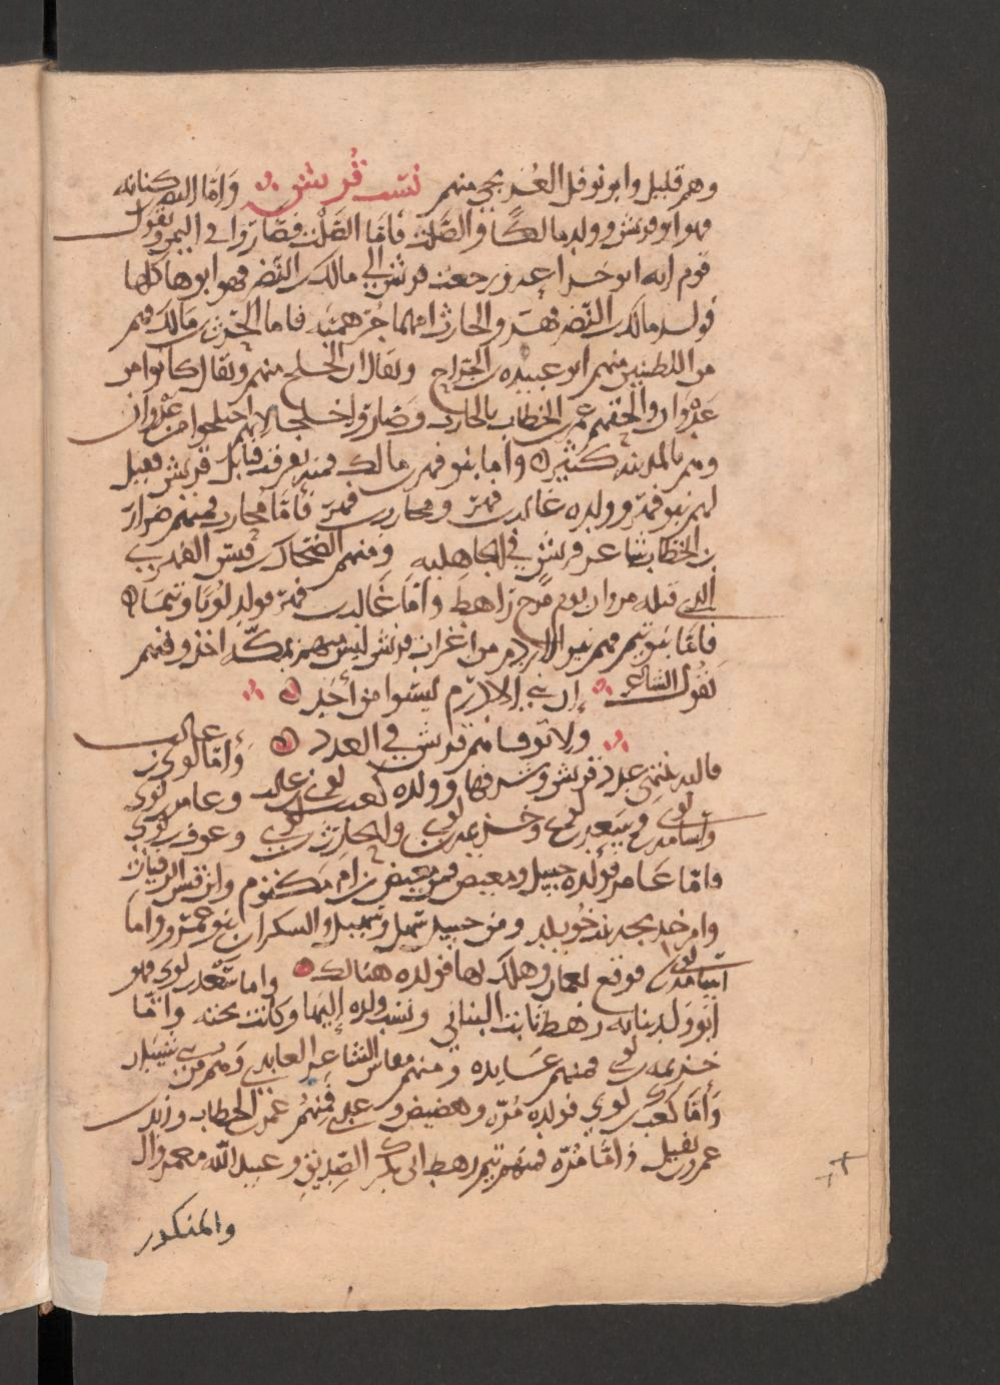 وهم قليل وابو نوفل العريجي منهم نسب قريش وأما النضر بن كنانه
فهو ابو قريش وولد مالكًا والصَّلت فأمّا الصَّلت فصاروا في اليمن ويقول
قوم انه ابو خزاعه ورجعت قريش الي مالك بن النَّضر فهو ابوها كلها
فولد مالك بن النضر فهر والحارث امهما جُرهميّه فاما الحرث بن مالك فهم
من المطيبين منهم ابو عبيده بن الجرّاح ويقال ان الخلج منهم ويقال كانوا من
عَدْوان والحقهم عمر بن الخطاب بالحارث وصاروا خلجا لانهم اختلجوا من عَدْوان
وهم بالمدينه كثير واما بنو فهر بن مالك فمنه تفرقت قبايل قريش فقيل
لهم بنو فهر وولده غالب بن فهر ومحارب بن فهر فأمّا محارب فمنهم ضرار
بن الخطاب شاعر قريش في الجاهليه ومنهم الضحاك بن قيس الفهري
الذي قتله مروان يوم مرج راهط وأمّا غالب بن فهر فولد لويًا وتيمًا
فامّا بنو تيم فهم بنو الادرم من اعراب قريش ليس منهم بمكّه احد وفيهم
يقول الشاعر إن بني الادرم ليسوا من أحَد
ولا توفاهم قريش في العدد وأمّا لوي بن غالب
فاليه ينتهي عدد قريش وشرفها وولده كعب بن لوي بن غالب وعامر بن لوي
وسامه بن لوي وسَعد بن لوي وخزيمه بن لوي والحارث بن لوي وعوف بن لوي
وامّا عامر فولده حسل ومعيص فمن معيص بن ام مكتوم وابن قيس الرقيات
وام خديجه بنت خُويلد ومن حسل سهل وسهيل والسكران بنو عمرو واما
سامه بن لوي فوقع بعمان وهلك بها فولده هنالك واما سَعْد بن لوي فهو
ابو ولد بنانه رهط ثابت البناني ونسب ولده إليها وكانت تحته وامّا
خزيمه بن لوي فمنهم عَايده ومنهم مقاس الشاعر العايدي وهم من بني شيبان
وأمّا كعب بن لوي فولده مُرّه وهصيص وعدي فمِنهُم عمر بن الخطاب وزيد بن
عمرو بن نفيل وأمّا مُرّه فمنهم تيم رهط ابي بكر الصِديق وعبيد الله بن معمر وال
والمنكدر